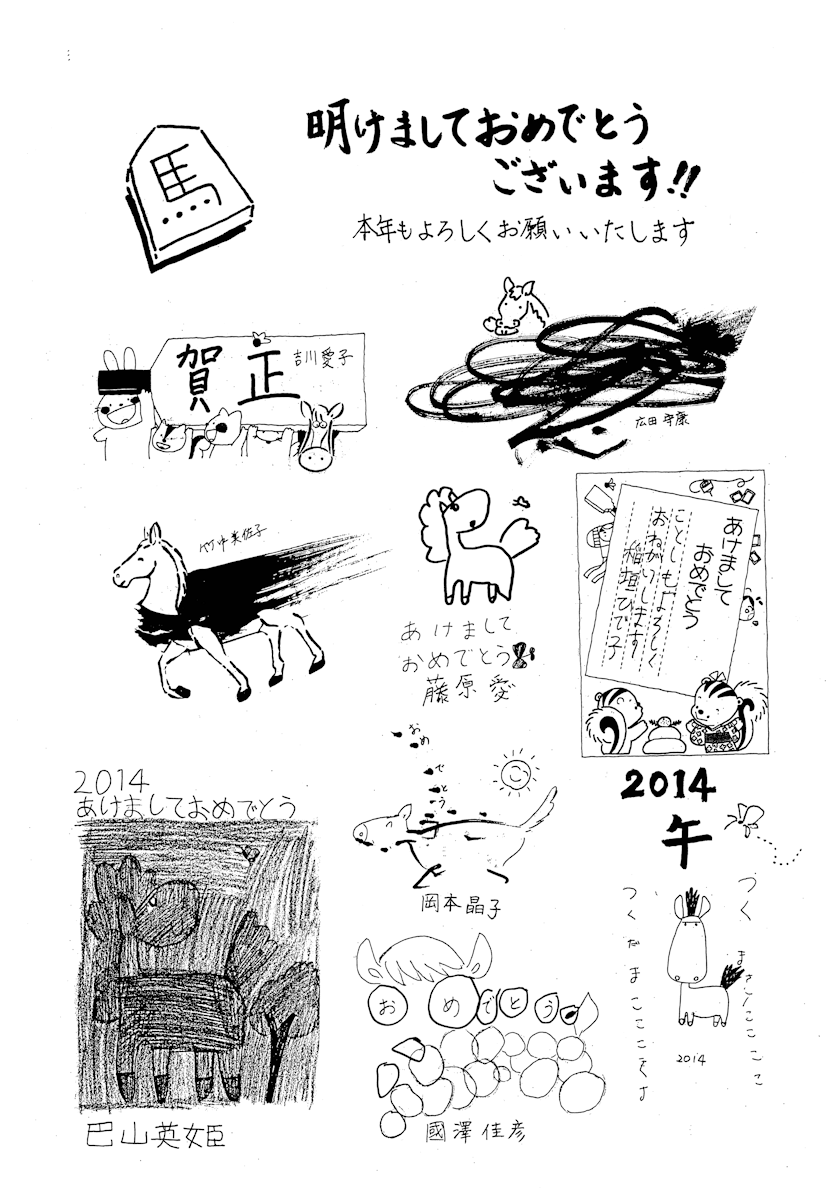 馬
明けましておめでとう
ございます!!
本年もよろしくお願いいたします
賀正
吉川愛子
広田守康
竹中美佐子
あけまして
おめでとう
藤原愛
あけまして
おめでとう
ことしもよろしく
おねがいします
稲垣ひで子
2014
あけましておめでとう
巴山英姫
おめでとう
岡本晶子
おめでとう
國澤佳彦
2014
午
2014